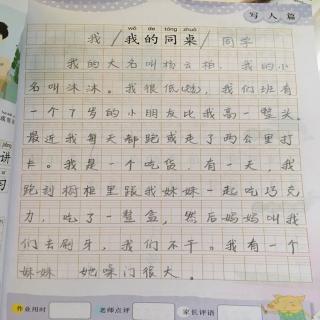 写人篇
wǒ de tóng zhuō
我 / 我的同桌 / 同学
我的大名叫杨云柏，我的小
名叫沐沐。我很低(矮)，我们班有
一个7岁的小朋友比我高一整头。
最近我每天都跑或走了两公里打
卡。我是一个吃货，有一天，我
跑到橱柜里跟我妹妹一起吃巧克
力，吃了一整盒，然后妈妈叫我
们去刷牙，我们不干。我有一个
妹妹，她嗓门很大。
作业用时
老师点评
家长评语
讲
习